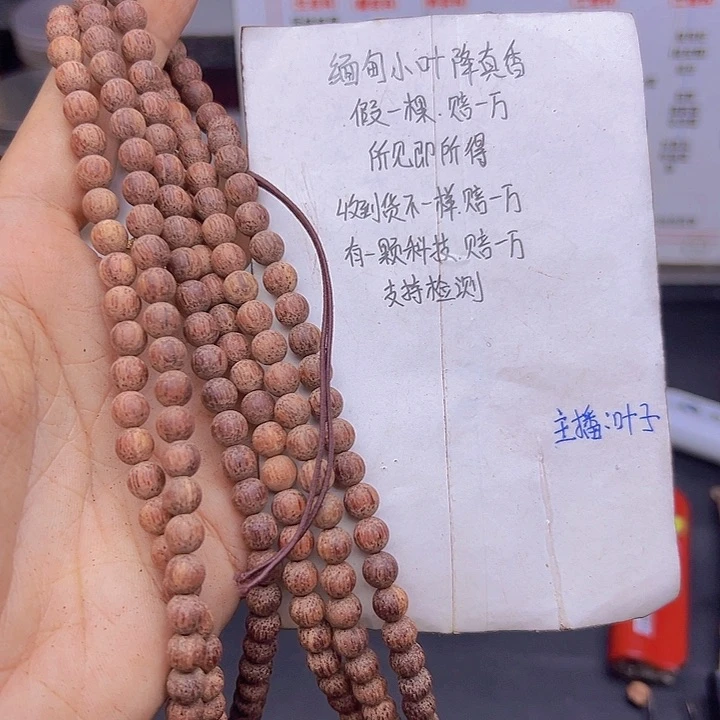 缅甸小叶降真香
假一棵.赔一万
所见即所得
收到货不一样.赔一万
有一颗科技.赔一万
支持检测
主播:叶子